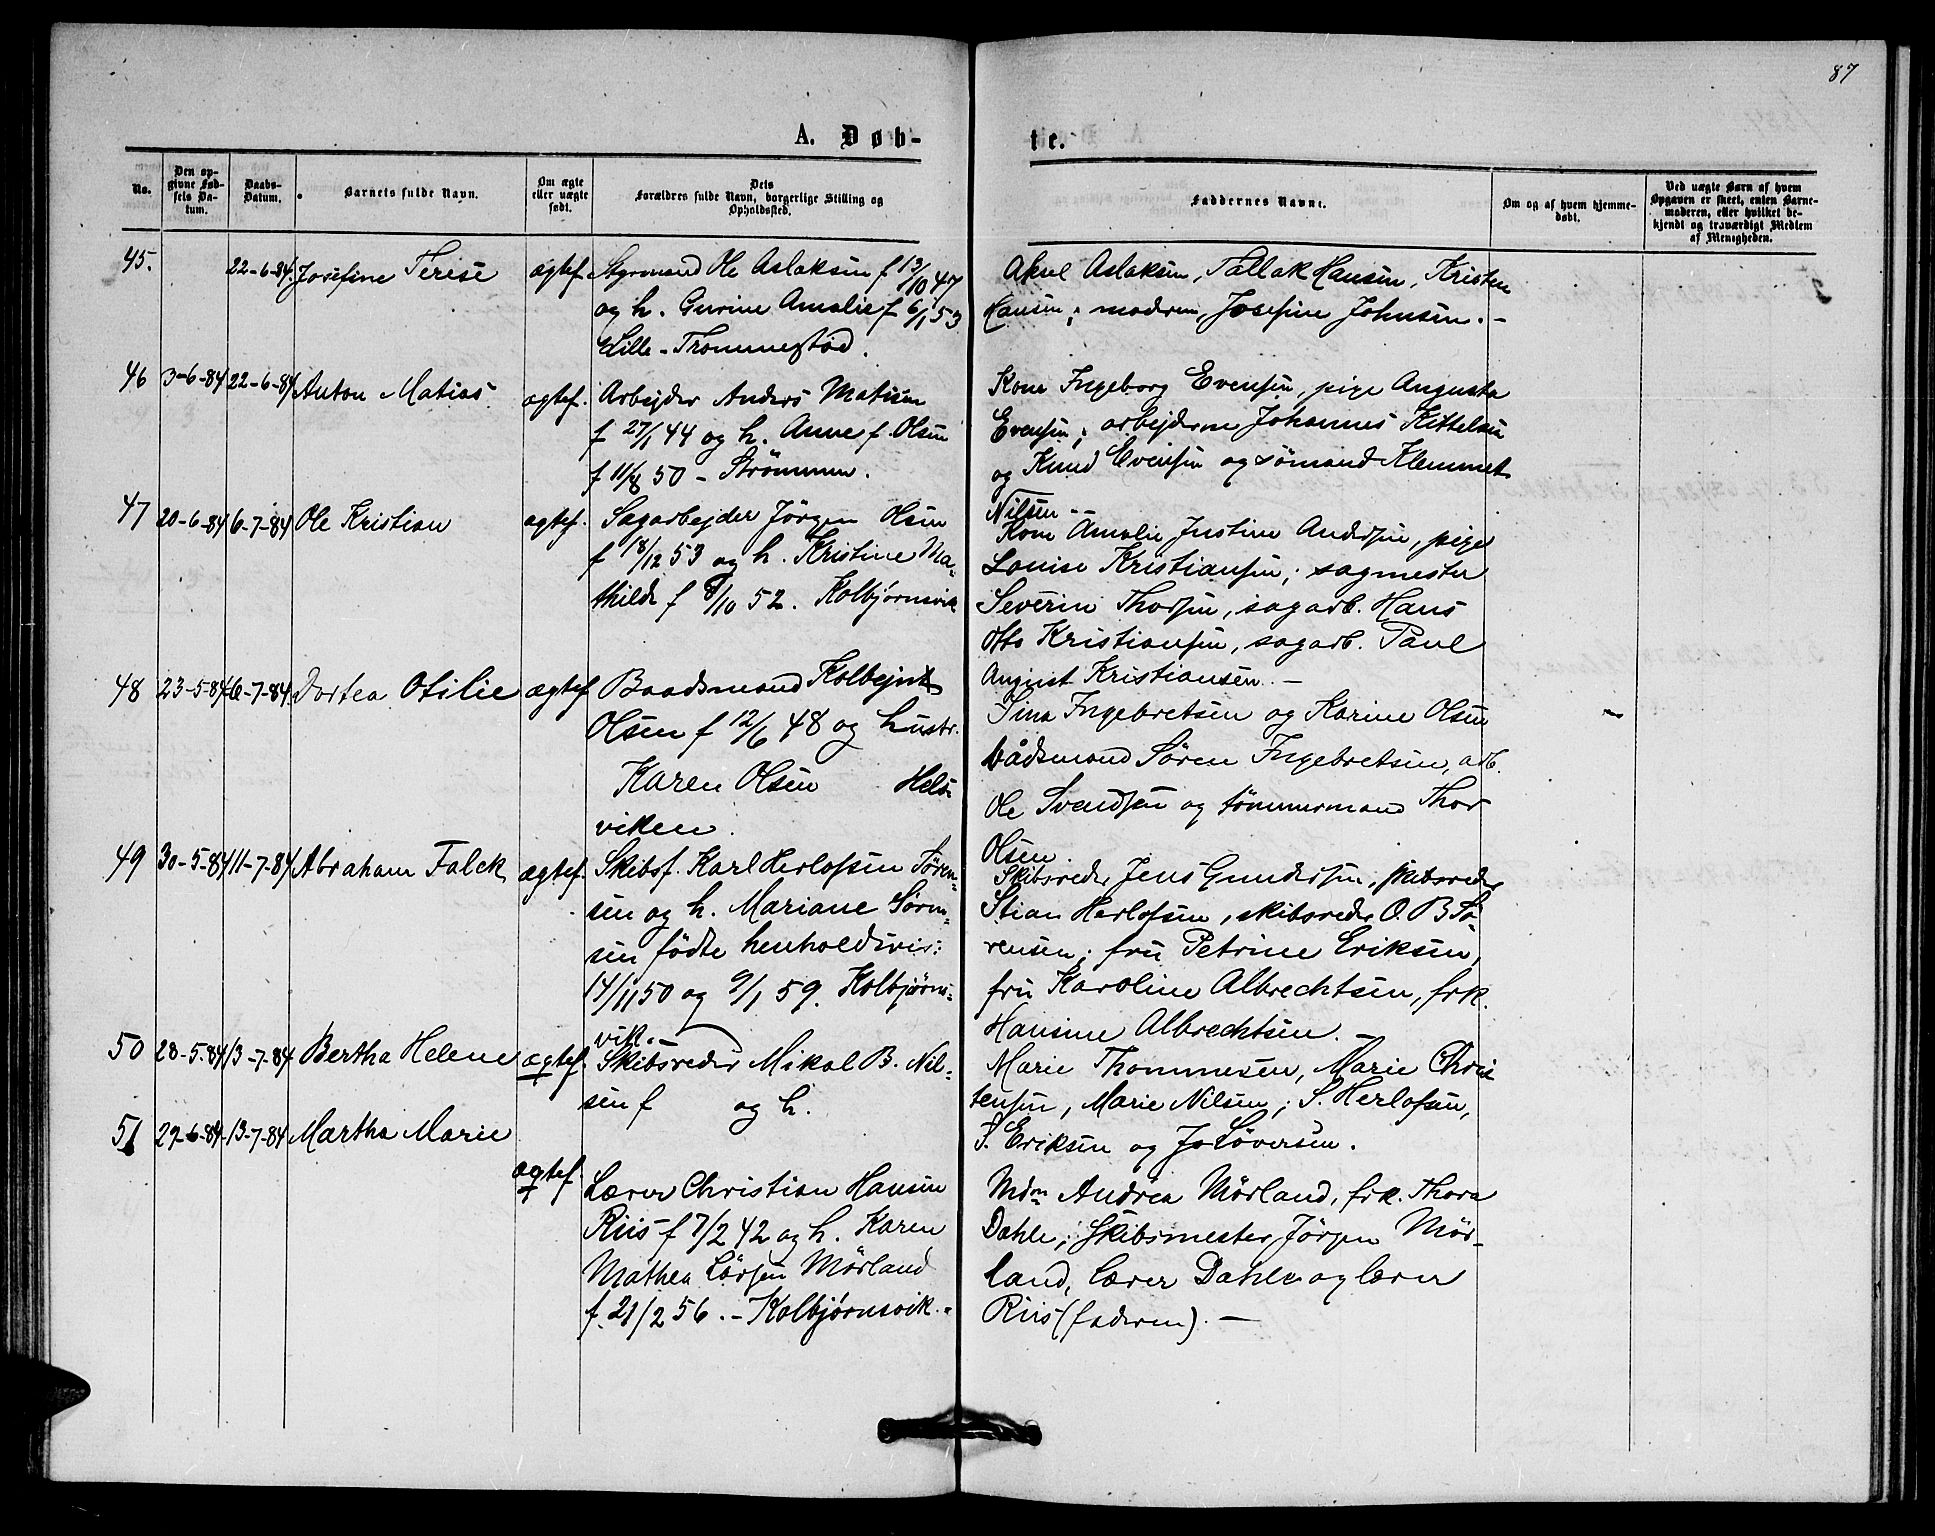 87
A. Døb-
te.
No.
Den op-
givne Fød-
sels Da-
tum.
Daabs-
Datum.
Barnets fulde Navn.
Om ægte
eller uægte
født.
Dets
Forældres fulde Navn, borgerlige Stilling og
Opholdssted.
Faddernes Navne.
Om og af hvem hjemme-
døbt.
Ved uægte Børn af hvem
Opgaven er skeet, enten Barne-
moderen, eller hvilket be-
kjendt og troværdigt Medlem
af Menigheden.
45. 22-6-84. Josefine Terese ægtef. Styrmand Ole Aslaksen f 13/10 47
og h. Gurine Amalie f 6/1 53
Lille-Trommestad.
Aksel Aslaksen, Tallak Hansen, Kristen
Hansen; modren, Josefine Johnsen. -
46 3-6-84 22-6-84 Anton Matias ægtef. Arbejder Anders Matisen
f 27/1 44 og h. Anne f. Olsen
f 11/8 50 - Strömmen.
Kone Ingeborg Evensen, pige Augusta
Evensen; arbejderne Johannes Kittelsen
og Knud Evensen og sömand Klemmet
Nilsen --
47 20-6-84 6-7-84 Ole Kristian ægtef. Sagarbejder Jörgen Olsen
f 18/12 53 og h. Kristine Ma-
thilde f 8/10 52. Kolbjørnsvik
Kone Amalie Justine Andersen, pige
Louise Kristiansen; sagmester
Severin Thorsen, sagarb. Hans
Otto Kristiansen, sagarb. Paul
August Kristiansen. -
48 23-5-84 6-7-84 Dortea Otilie ægtef Baadsmand
Olsen f 12/6 48 og hustr.
Karen Olsen Hels-
viken.
Sina Ingebretsen og Karine Olsen
bådsmand Sören Ingebretsen, arb.
Ole Svendsen og tömmermand Thor
Olsen.
49 30-5-84 11-7-84 Abraham Falck ægtef. Skibsf. Karl Herlofsen Sören-
sen og h. Mariane Sören-
sen födte henholdsvis:
14/11 50 og 9/1 59. Kolbjørns-
vik. -
Skibsreder Jens Gundersen, skibsreder
Stian Herlofsen, skibsreder O. B Sö-
rensen; fru Petrine Eriksen,
fru Karoline Albrechtsen, frk.
Hansine Albrechtsen. -
50 28-5-84 13-7-84 Bertha Helene ægtef. Skibsreder Mikal B. Nil-
sen f og h.
Marie Thommesen, Marie Chris
tensen, Marie Nilsen; S. Herlofsen,
S. Eriksen og Jo Löversen.
51 29-6-84 13-7-84 Martha Marie ægtef. Lærer Christian Hansen
Riis f 7/2 42 og h. Karen
Mathea Lörsen Mörland
f. 21/2 56. - Kolbjørnsvik. -
Mdm Andrea Mörland, frk. Thora
Dahle; Skibsmester Jörgen Mör-
land, lærer Dahle og lærer
Riis (faderen). -